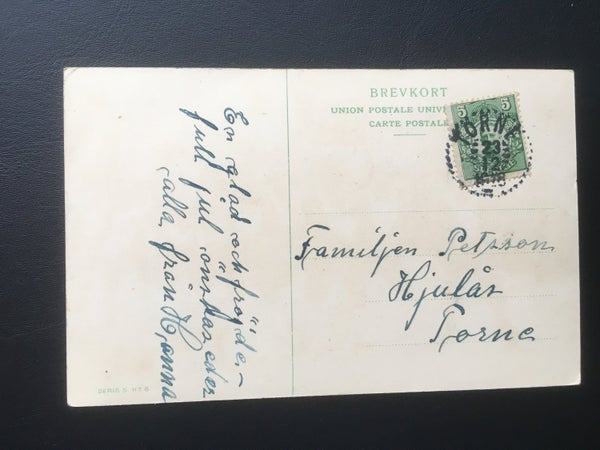 BREVKORT
UNION POSTALE UNIV
CARTE POSTALE
5 5
23
12
En glad och fröjde-
full jul önskas eder
alla från Hanna
Familjen Petsson
Hjulås
Torne
SERIE S. Nº 6